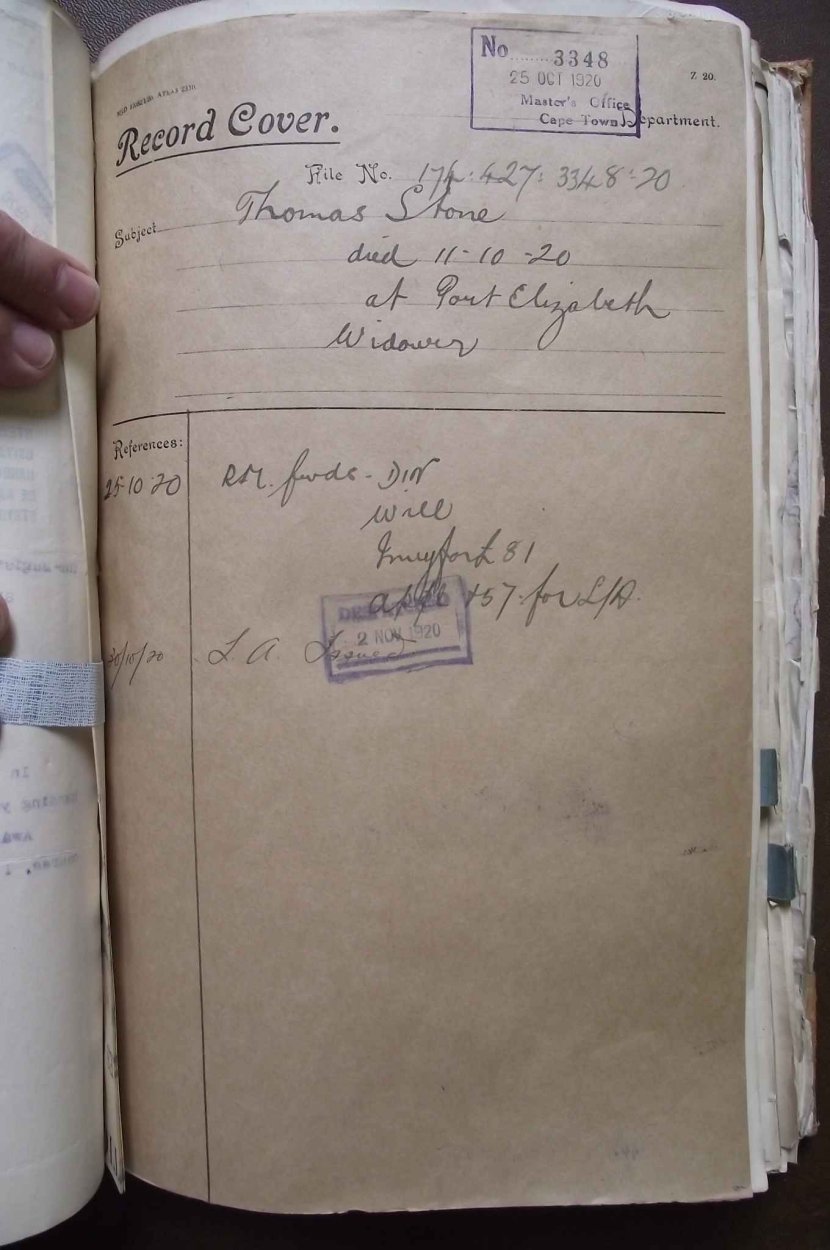 No. 3348
25 OCT 1920
Master's Office
Cape Town Department.
Z 20.
Record Cover.
File No. 174:427:3348:20
Subject Thomas Stone
died 11-10-20
at Port Elizabeth
Widower
References:
25-10-20 R.M. fwds - DN
Will
81
457 for L/A.
2 NOV 1920
30/10/20 L. A. Issued